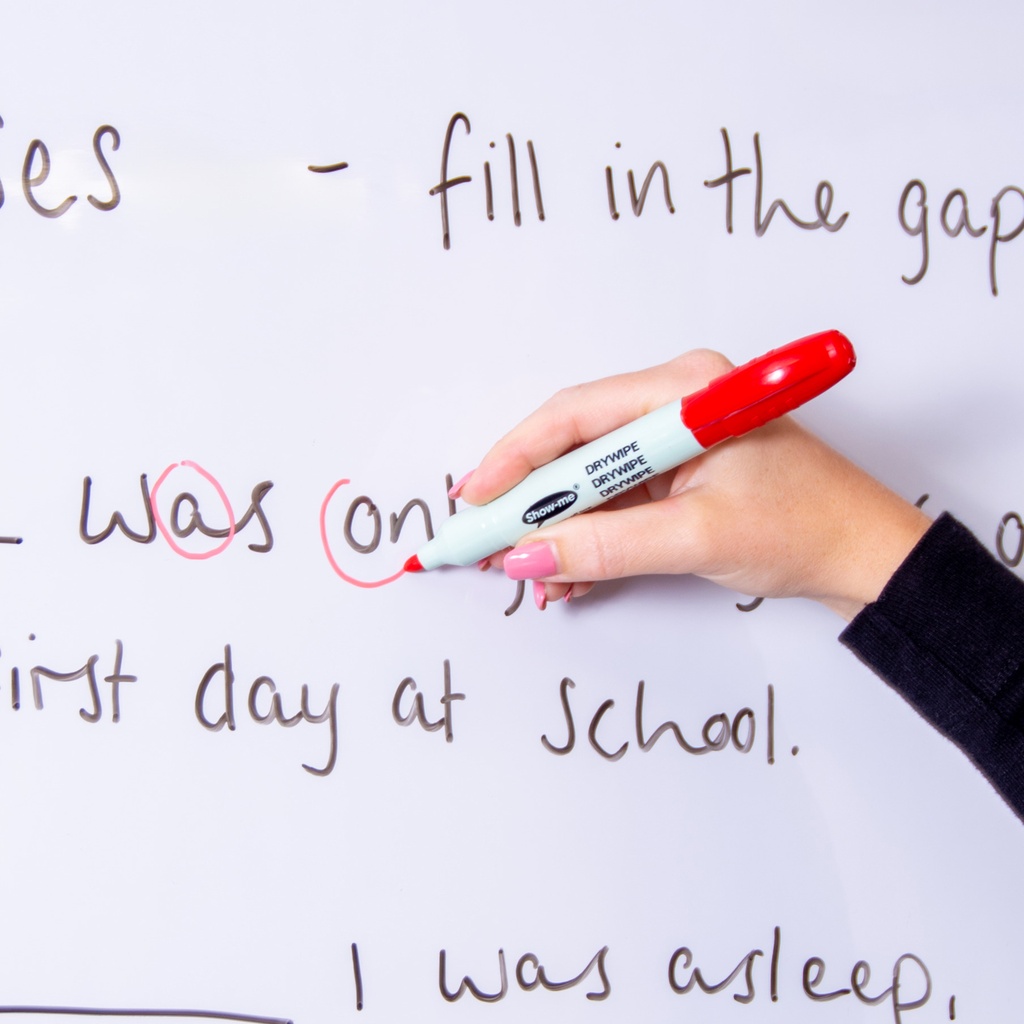 - fill in the
was
first day at school.
I was asleep,
Show-me®
DRYWIPE
DRYWIPE
DRYWIPE